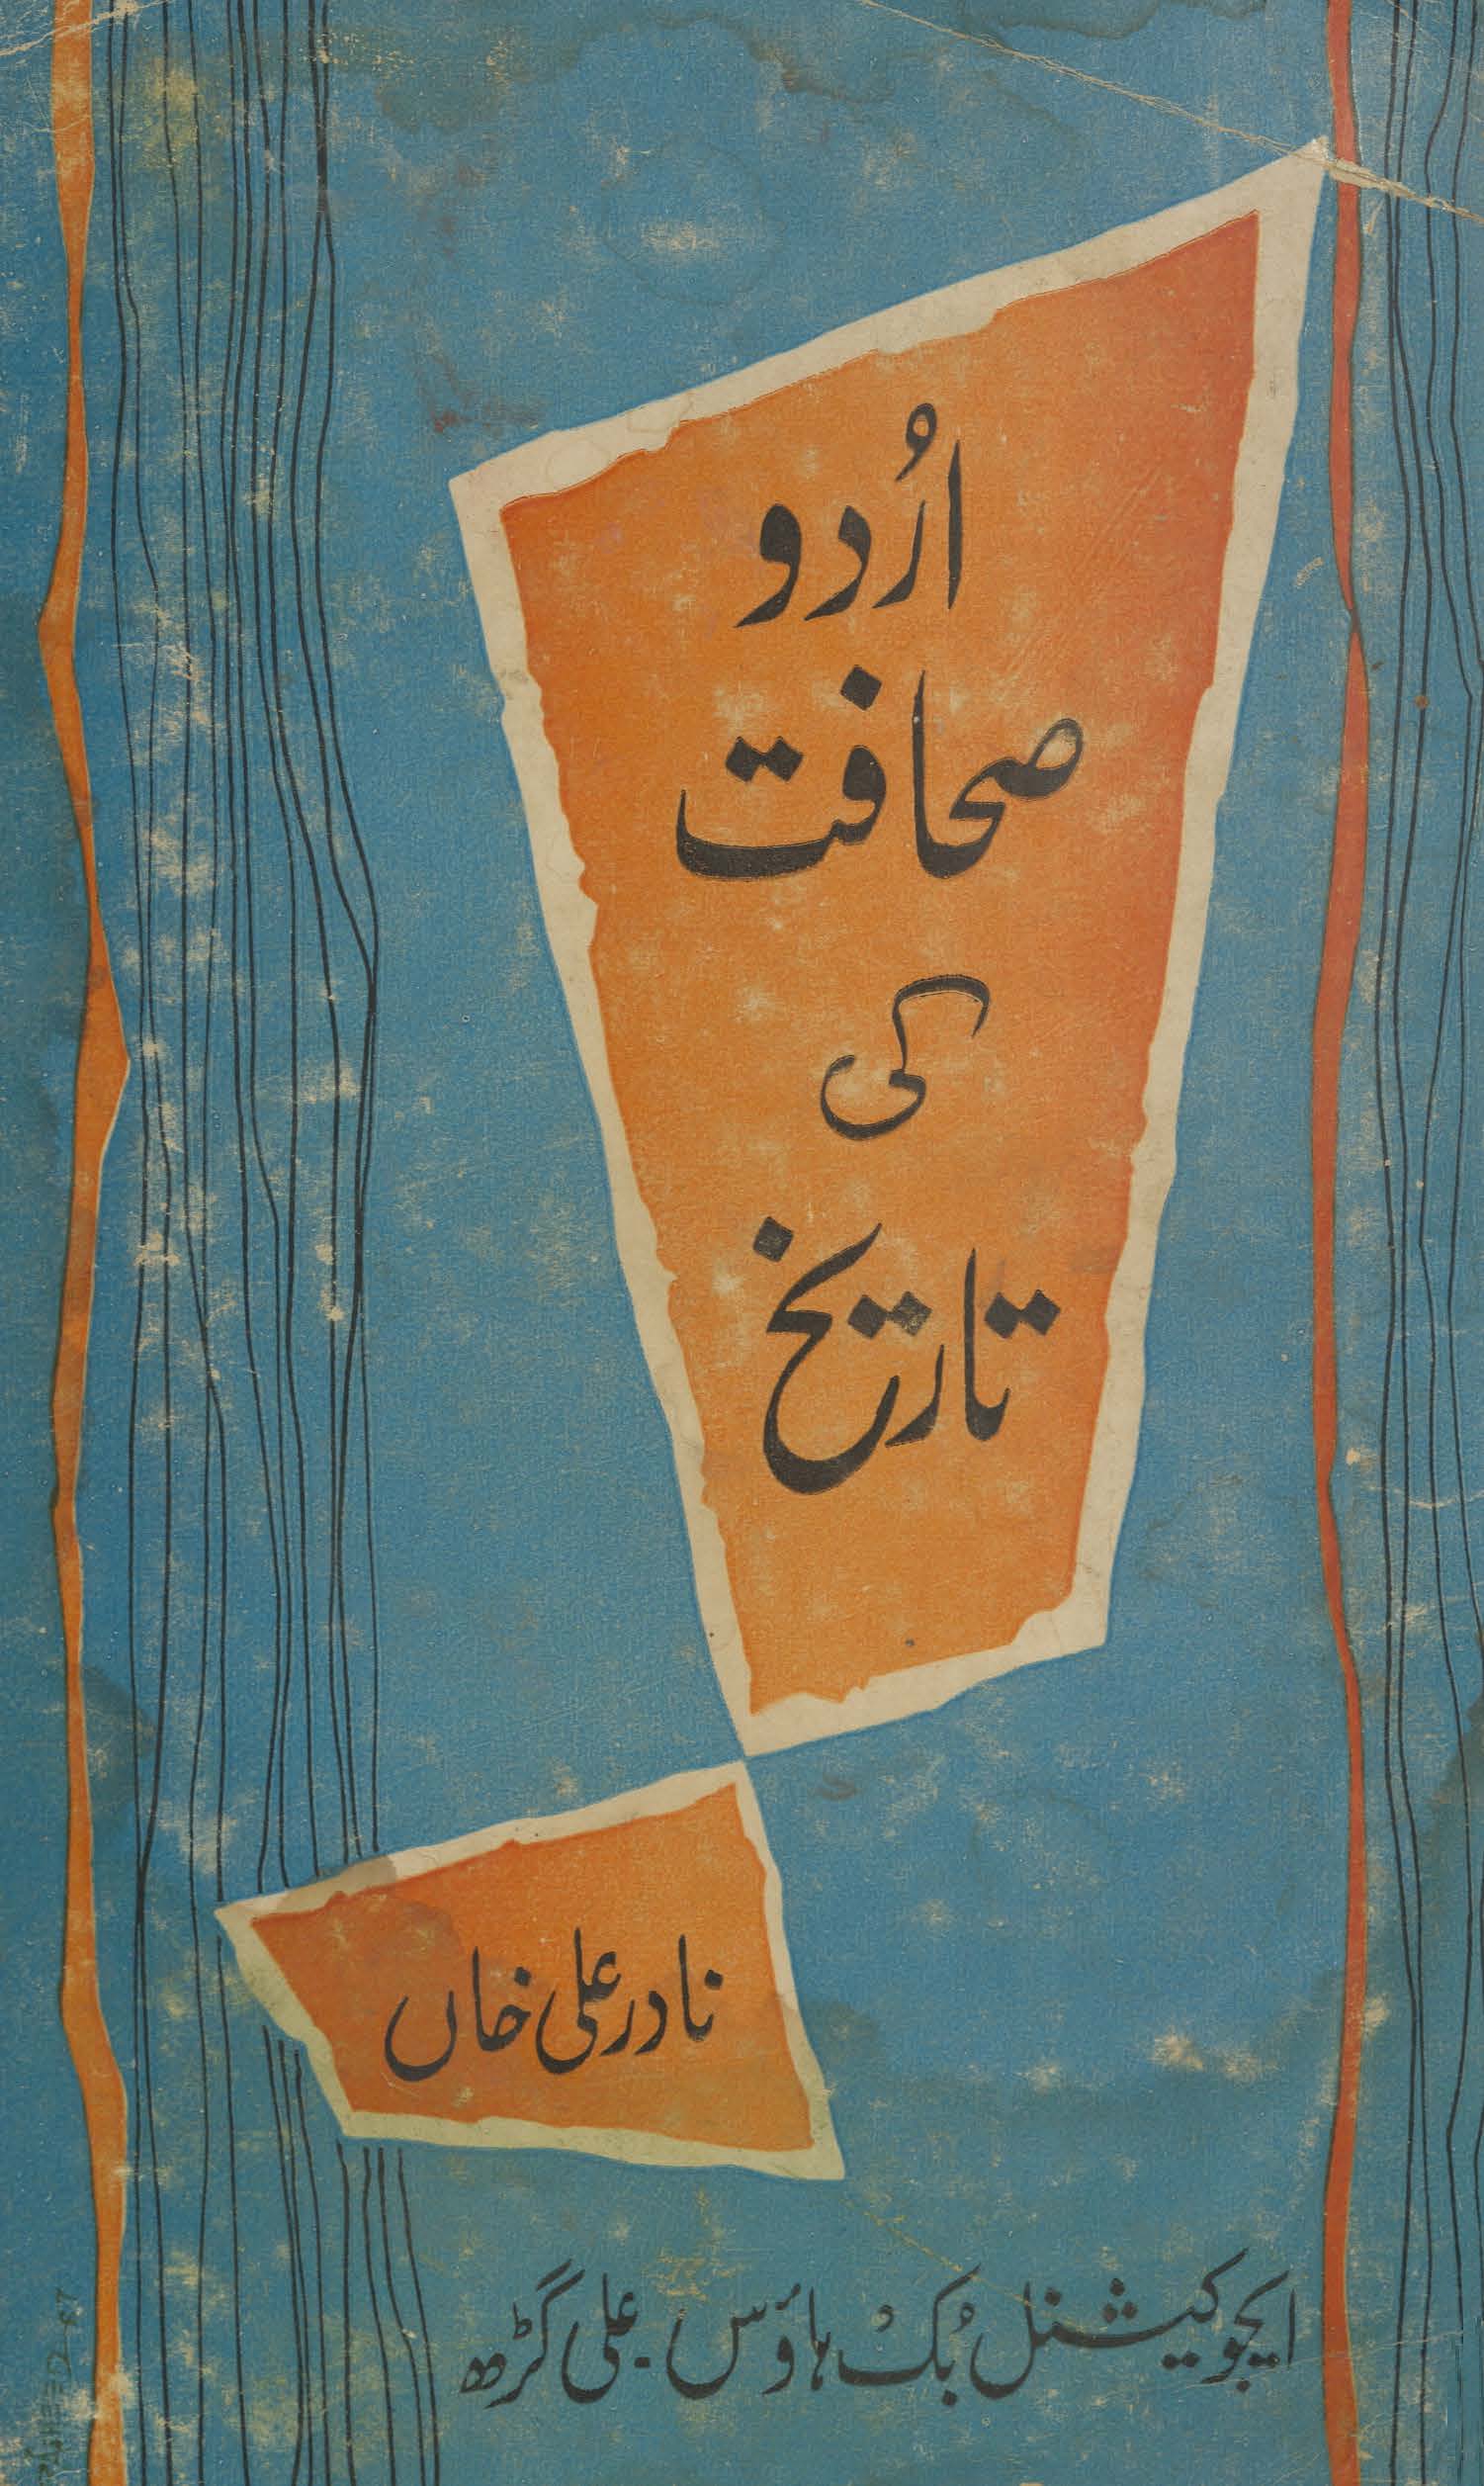 اُردو
صحافت
کی
تاریخ
نادر علی خاں
ایجوکیشنل بُک ہاؤس۔ علی گڑھ